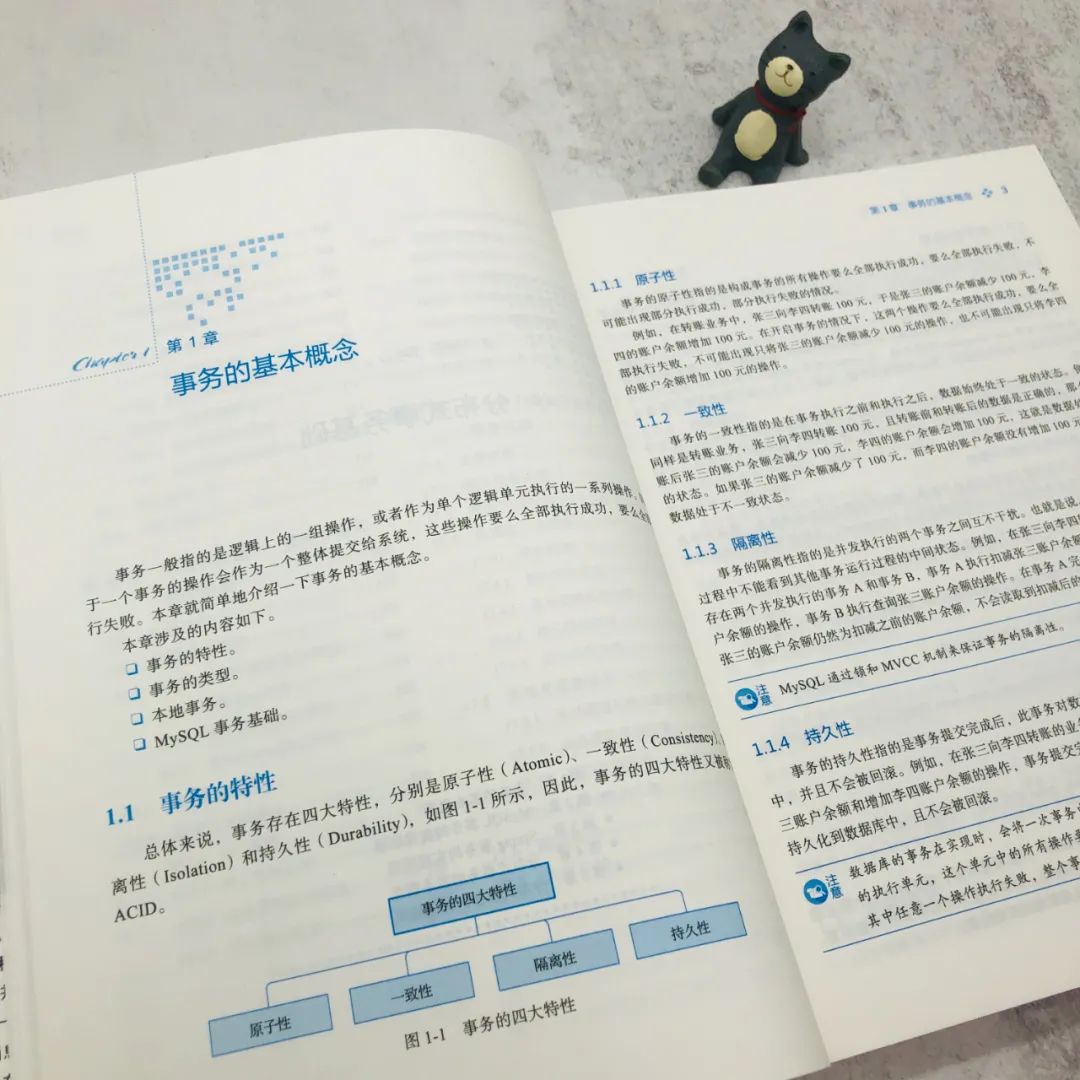 Chapter 1
第 1 章
事务的基本概念
事务一般指的是逻辑上的一组操作，或者作为单个逻辑单元执行的一系列操作，
于一个事务的操作会作为一个整体提交给系统，这些操作要么全部执行成功，要么全
行失败。本章就简单地介绍一下事务的基本概念。
本章涉及的内容如下。
❏ 事务的特性。
❏ 事务的类型。
❏ 本地事务。
❏ MySQL 事务基础。
1.1 事务的特性
总体来说，事务存在四大特性，分别是原子性（Atomic）、一致性（Consistency）、
离性（Isolation）和持久性（Durability），如图 1-1 所示，因此，事务的四大特性又
ACID。
事务的四大特性
原子性
一致性
隔离性
持久性
图 1-1 事务的四大特性
第 1 章 事务的基本概念 3
1.1.1 原子性
事务的原子性指的是构成事务的所有操作要么全部执行成功，要么全部执行失败，不
可能出现部分执行成功，部分执行失败的情况。
例如，在转账业务中，张三向李四转账 100 元，于是张三的账户余额减少 100 元，李
四的账户余额增加 100 元。在开启事务的情况下，这两个操作要么全部执行成功，要么全
部执行失败，不可能出现只将张三的账户余额减少 100 元的操作，也不可能出现只将李四
的账户余额增加 100 元的操作。
1.1.2 一致性
事务的一致性指的是在事务执行之前和执行之后，数据始终处于一致的状态。例
同样是转账业务，张三向李四转账 100 元，且转账前和转账后的数据是正确的，那
账后张三的账户余额会减少 100 元，李四的账户余额会增加 100 元，这就是数据
的状态。如果张三的账户余额减少了 100 元，而李四的账户余额没有增加 100 元
数据处于不一致状态。
1.1.3 隔离性
事务的隔离性指的是并发执行的两个事务之间互不干扰。也就是说，
过程中不能看到其他事务运行过程的中间状态。例如，在张三向李四
存在两个并发执行的事务 A 和事务 B，事务 A 执行扣减张三账户余额
户余额的操作，事务 B 执行查询张三账户余额的操作。在事务 A 完
张三的账户余额仍然为扣减之前的账户余额，不会读取到扣减后的
注意
MySQL 通过锁和 MVCC 机制来保证事务的隔离性。
1.1.4 持久性
事务的持久性指的是事务提交完成后，此事务对数
中，并且不会被回滚。例如，在张三向李四转账的业
三账户余额和增加李四账户余额的操作，事务提交完
持久化到数据库中，且不会被回滚。
注意
数据库的事务在实现时，会将一次事务
的执行单元，这个单元中的所有操作
其中任意一个操作执行失败，整个事